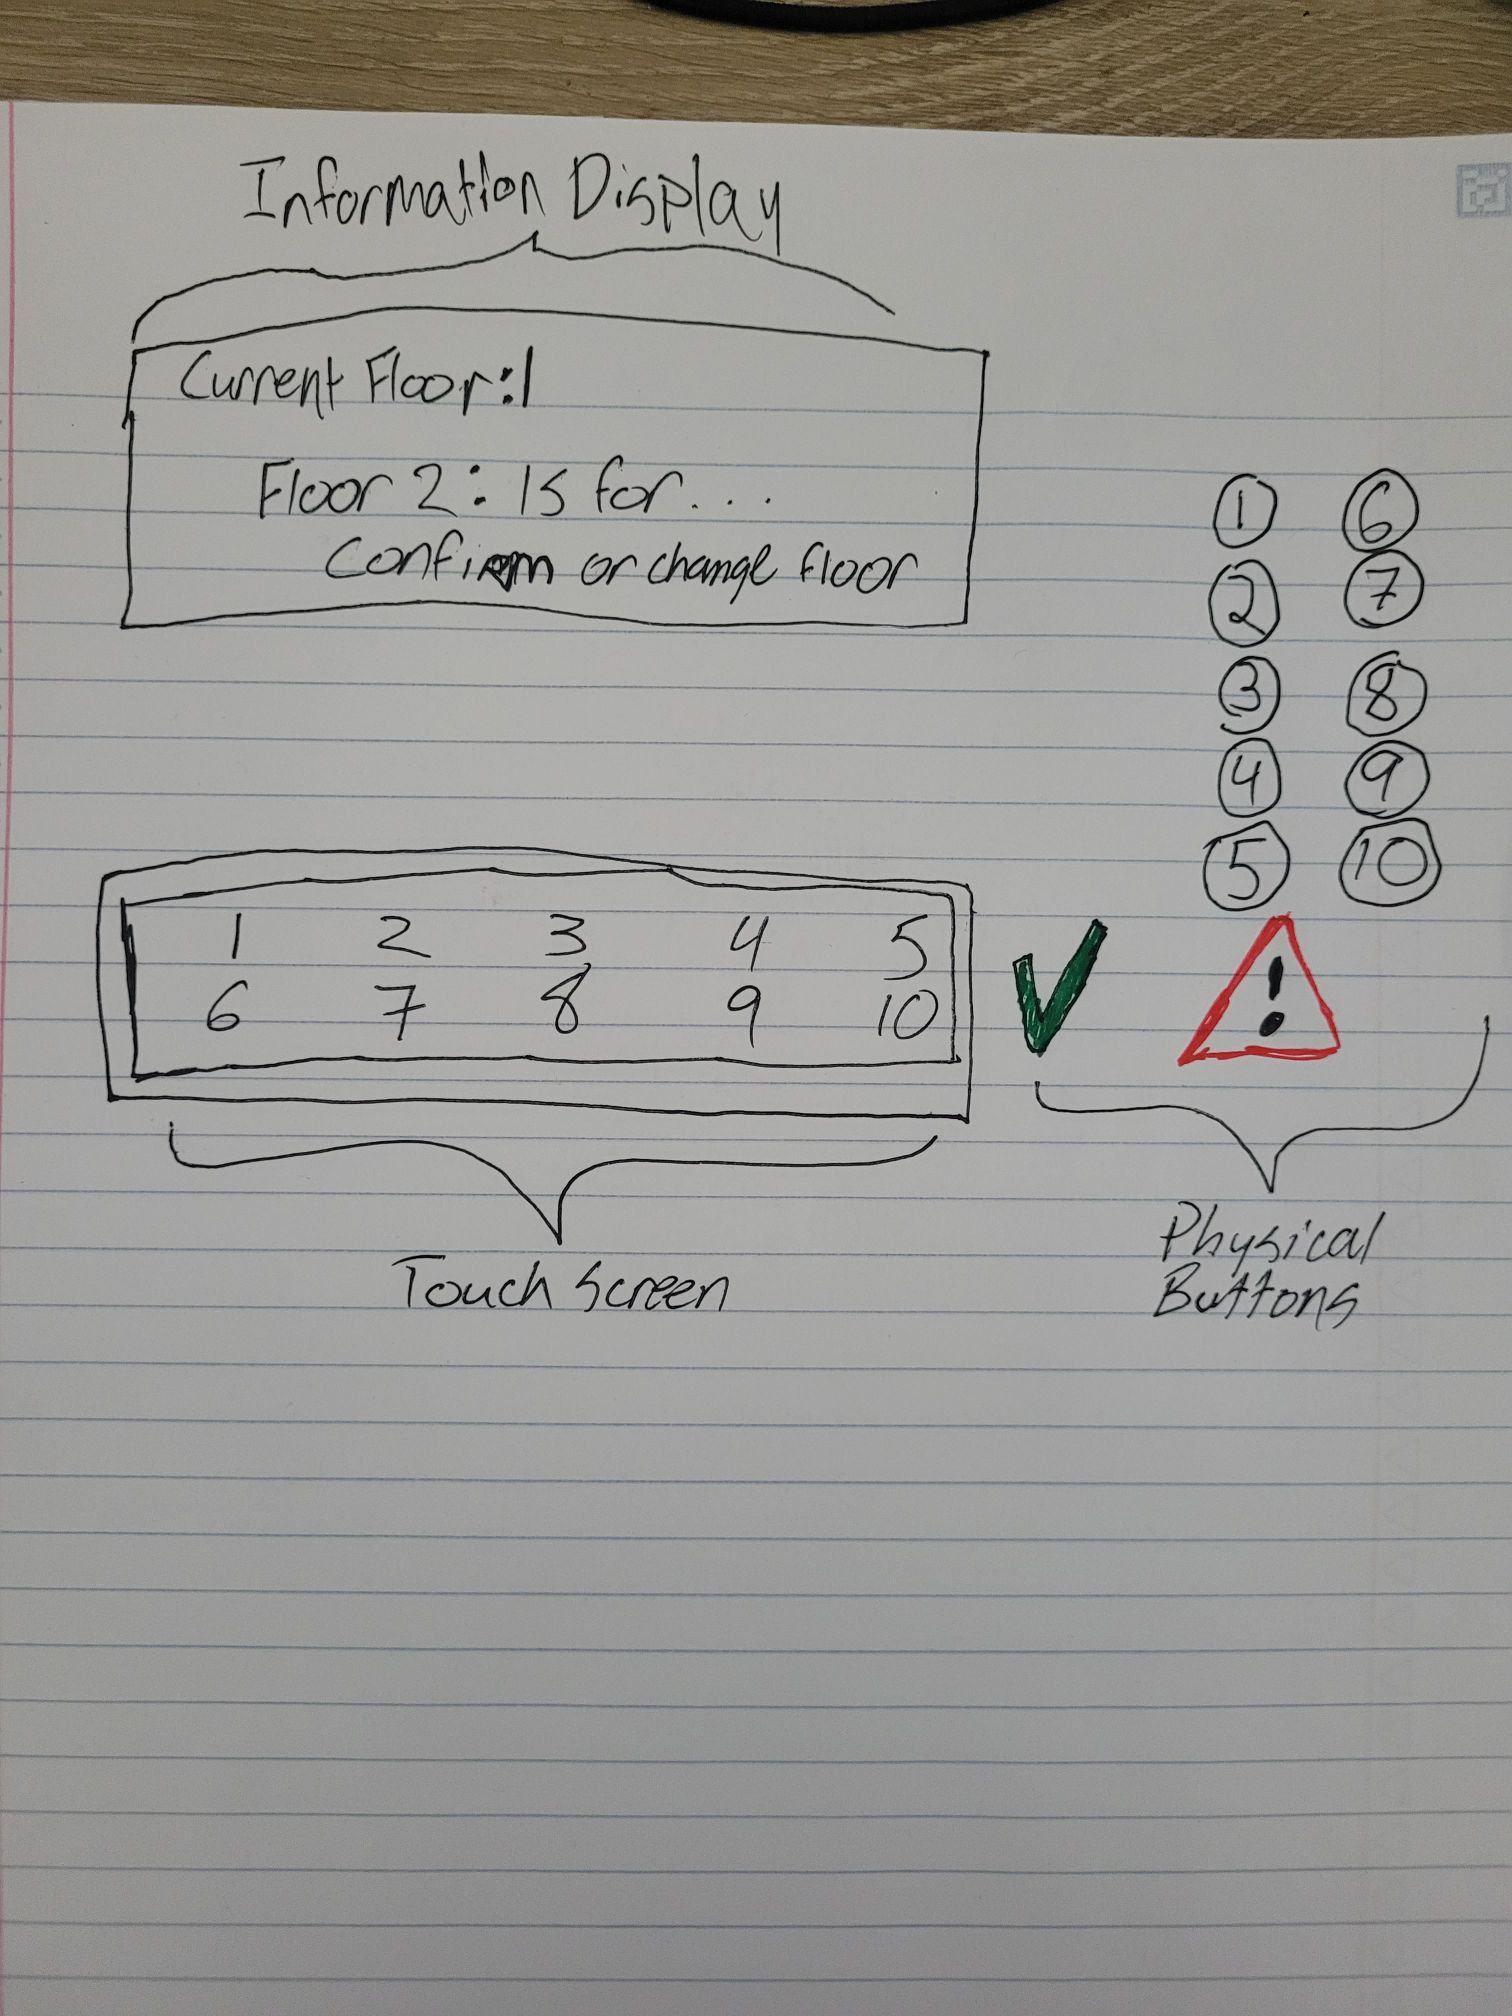 Information Display
Current Floor:1
Floor 2: Is for...
Confirm or change floor
1 6
2 7
3 8
4 9
5 10
1 2 3 4 5
6 7 8 9 10
!
Touch Screen
Physical
Buttons